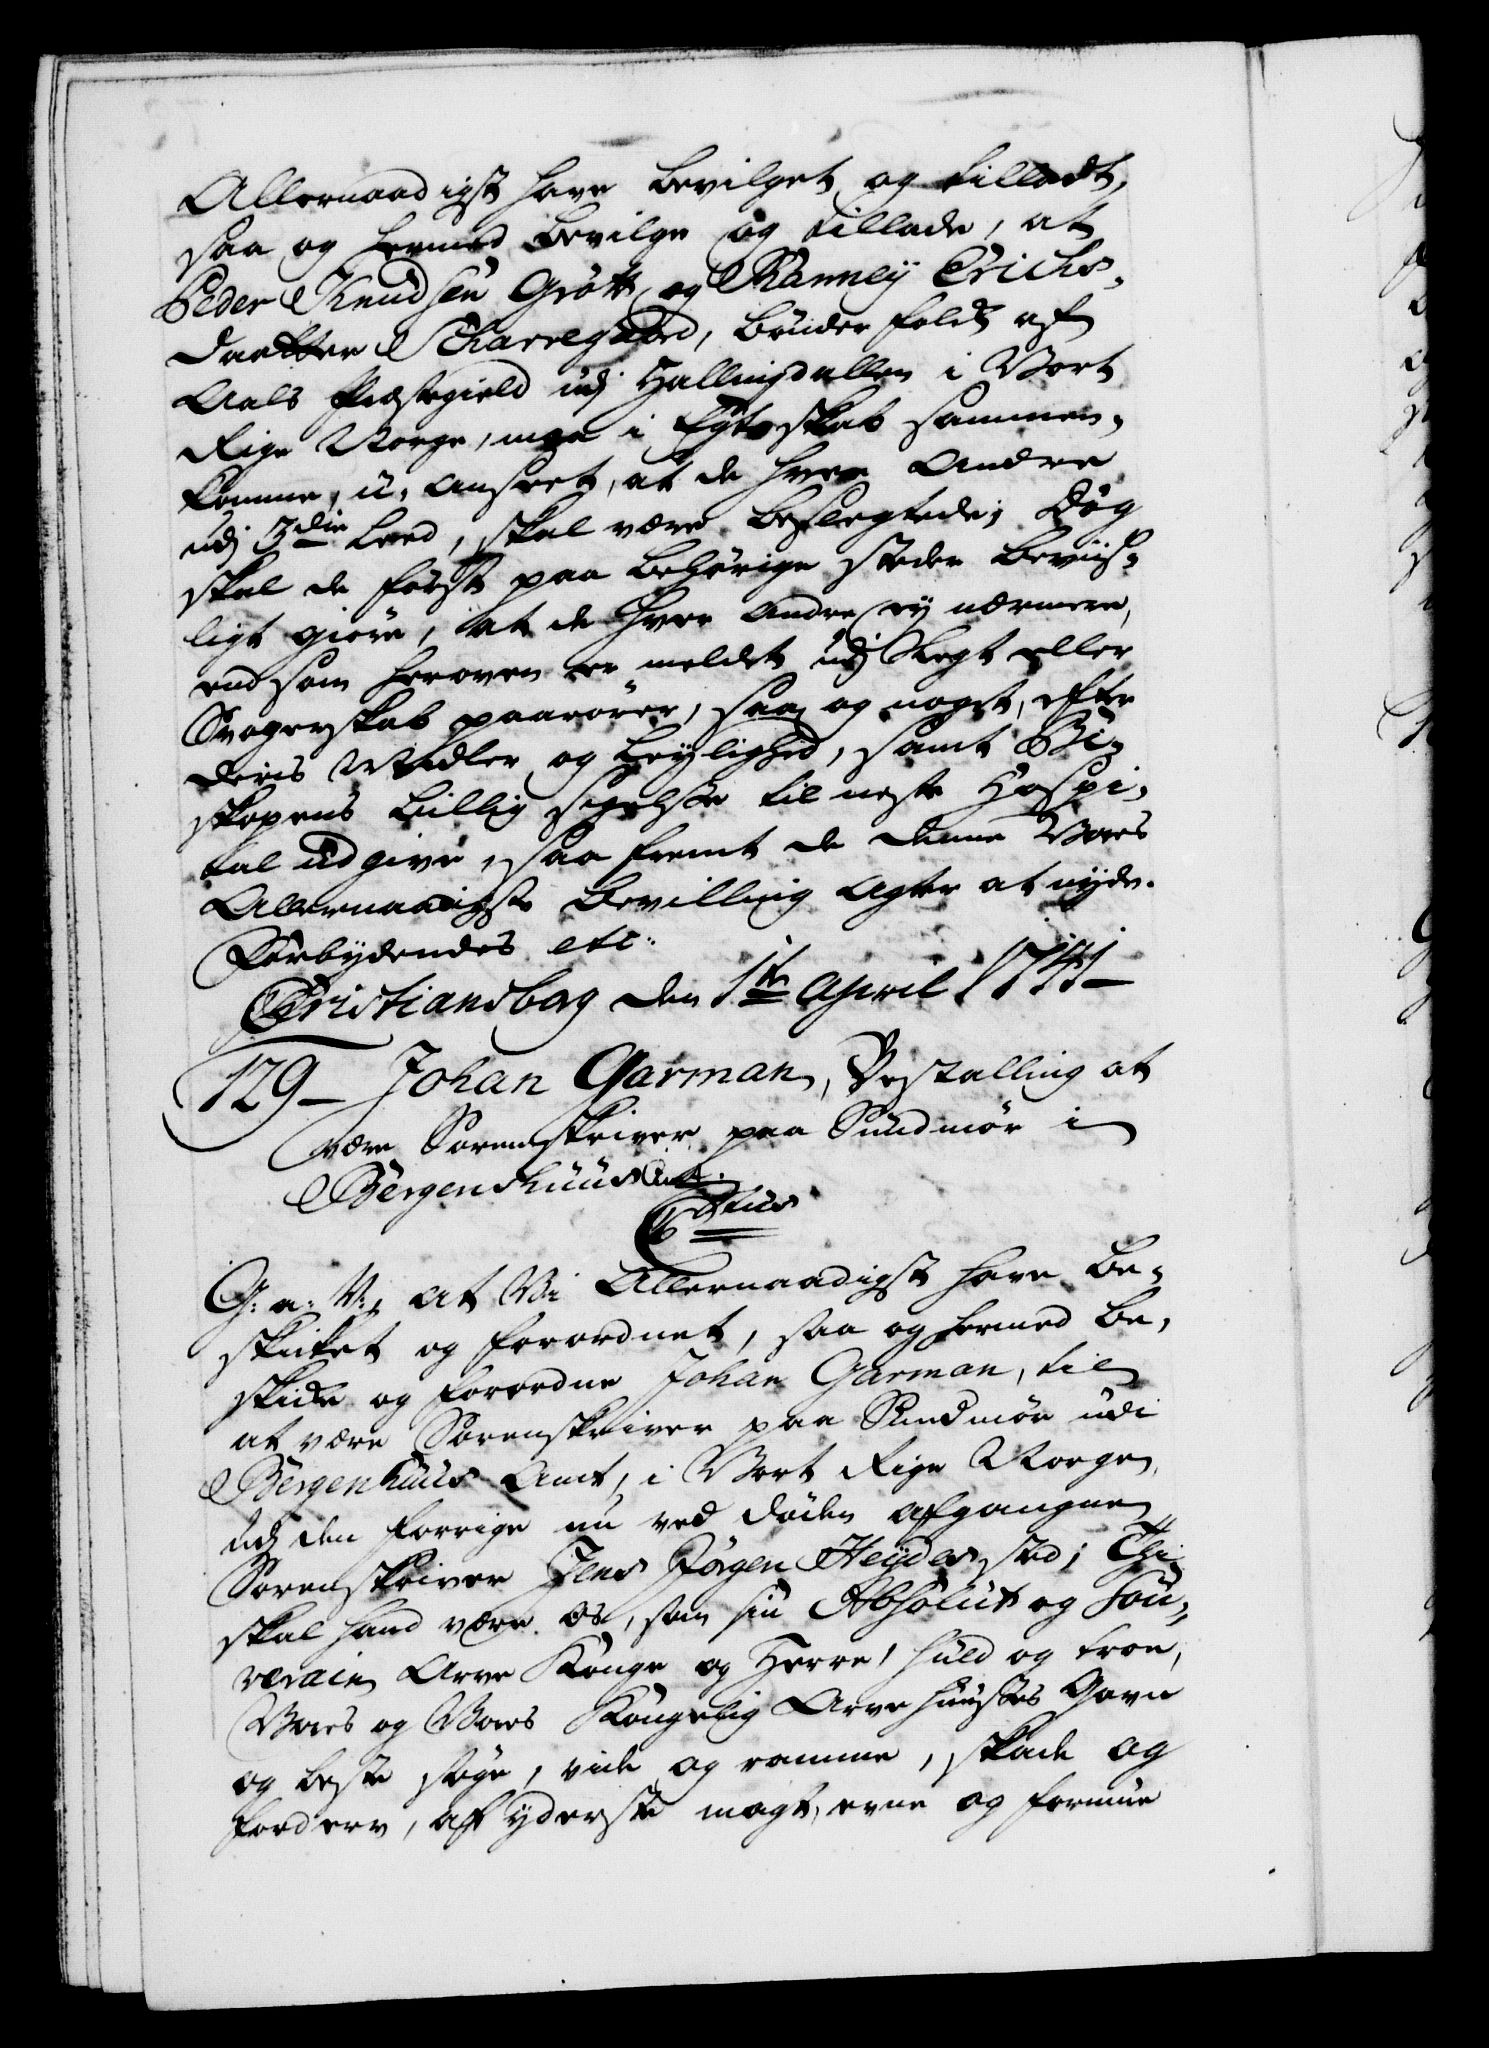 Allernaadigst have bevilget og tilladt,
saa og hermed bevilge og tillade, at
Peder Knudsen Grøtt, og Ranney Erichs-
daatter Scharregaard, bönder folck af
Aals Præstegield udj Hallingdallen i Vort
Rige Norge, maa i Egteskab sammen-
komme, u-anseet, at de hver Andre
udj 3die Leed, skal være beslegtede; Dog
skal de først paa behörige steder beviis-
ligt giöre, at de hver andre ey nærmere,
end som heroven er meldet udj Slegt eller
Svogerskab paarörer, saa og noget, efter
deris Midler og leylighed, samt Bi-
skopens billig sigelse til neste Hospi-
tal udgive, saa fremt de denne Vores
Allernaadigste bevilling agter at nyde.
Forbydendes etc:
Christiansborg den 1te April 1741
129 – Johan Garman, Bestalling at
være Sorenskriver paa Sundmør i
Bergenshuus Amt.
C 6tus
G: a: V:, at Vi Allernaadigst have be-
skikket og forordnet, saa og hermed be-
skikke og forordne Johan Garman, til
at være Sorenskriver paa Sundmør udi
Bergenhuus Amt, i Vort Rige Norge,
udj den forrige nu ved döden afgangne
Sorenskriver Jens Jörgen Heyders sted; Thi
skal hand være os, som sin Absolut og Sou-
verain Arve Konge og Herre, huld og troe,
Vores og Vores Kongelig Arve Huuses Gavn
og beste söge, vide og ramme, skade og
forderv, af yderste magt, evne og formue